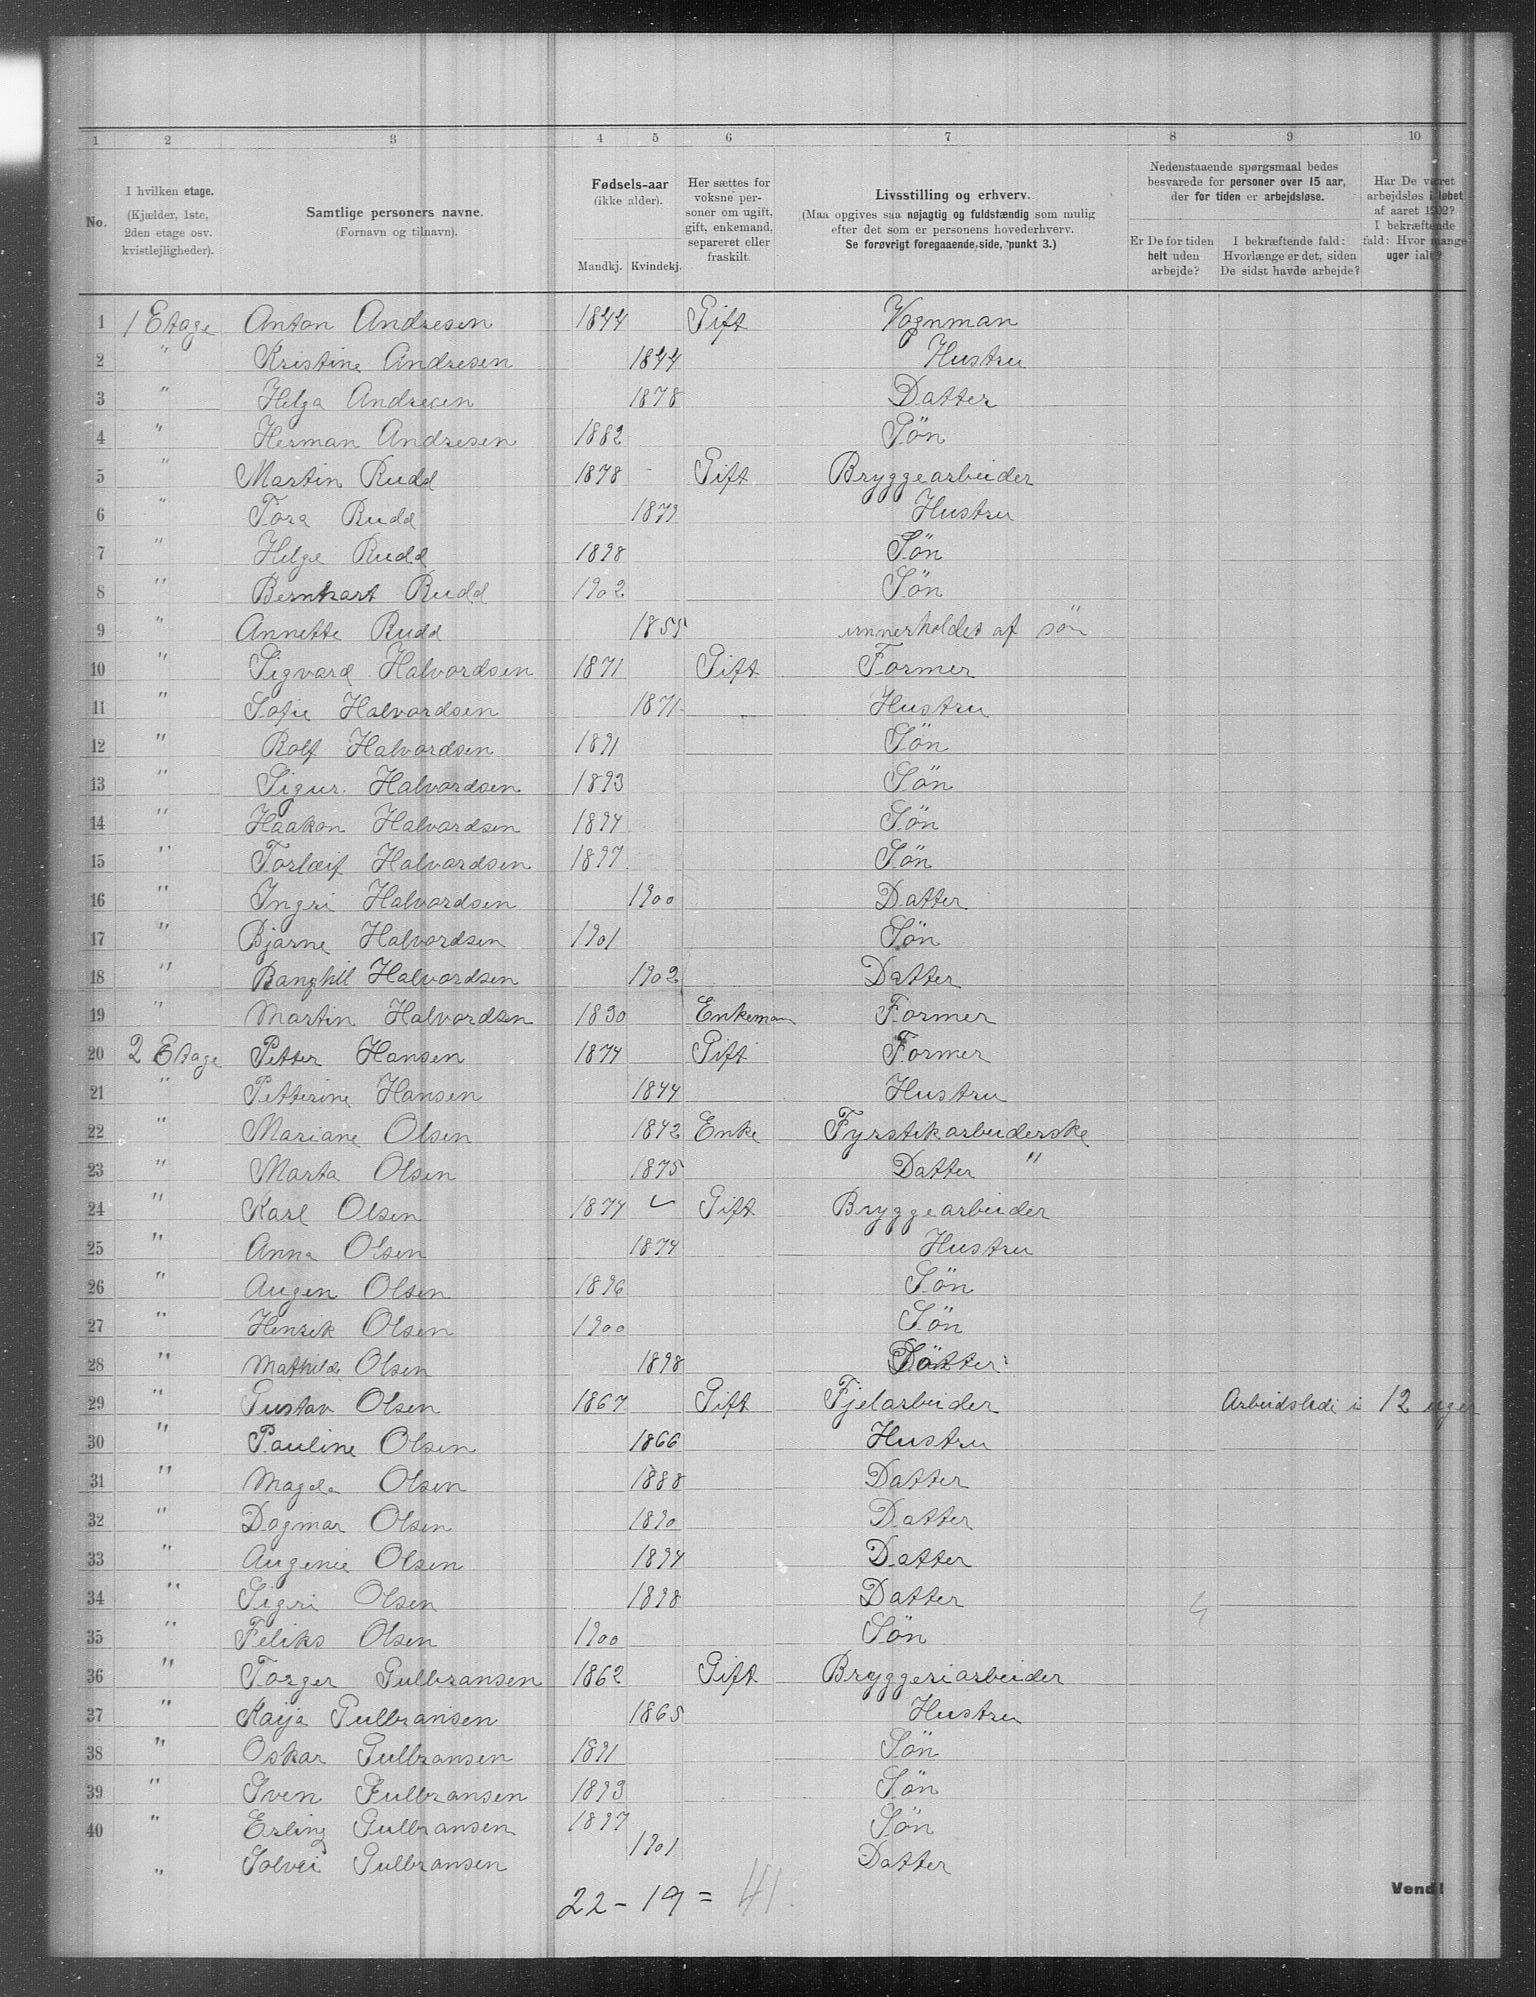 1 2 3 4 5 6 7 8 9 10
No.
I hvilken etage.
(Kjælder, 1ste,
2den etage osv.
kvistlejligheder).
Samtlige personers navne.
(Fornavn og tilnavn).
Fødsels-aar
(ikke alder).
Mandkj. Kvindekj.
Her sættes for
voksne per-
soner om ugift,
gift, enkemand,
separeret eller
fraskilt.
Livsstilling og erhverv.
(Maa opgives saa nøjagtig og fuldstændig som mulig
efter det som er personens hovederhverv.
Se forøvrigt foregaaende side, punkt 3.)
Nedenstaaende spørgsmaal bedes
besvarede for personer over 15 aar,
der for tiden er arbejdsløse.
Er De for tiden
helt uden
arbejde?
I bekræftende fald:
Hvorlænge er det, siden
De sidst havde arbejde?
Har De været
arbejdsløs i løbet
af aaret 1902?
I bekræftende
fald: Hvor mange
uger ialt?
1 1 Etage Anton Andresen 1844 Gift Vognman
2 " Kristine Andresen 1844 Hustru
3 " Helga Andresen 1878 Datter
4 " Herman Andresen 1882 Søn
5 " Martin Rudd 1878 - Gift Bryggearbeider
6 " Tora Rudd 1879 Hustru
7 " Helge Rudd 1898 Søn
8 " Bernhart Rudd 1902 Søn
9 " Annette Rudd 1855 unnerholdet af sön
10 " Sigvard Halvordsen 1871 Gift Former
11 " Sofie Halvordsen 1871 Hustru
12 " Rolf Halvordsen 1891 Sön
13 " Sigur. Halvordsen 1893 Sön
14 " Haakon Halvordsen 1894 Sön
15 " Torlæif Halvordsen 1897 Sön
16 " Ingri Halvordsen 1900 Datter
17 " Bjarne Halvordsen 1901 Sön
18 " Ranghil Halvordsen 1902 Datter
19 " Martin Halvordsen 1830 Enkeman Former
20 2 Etage Petter Hansen 1874 Gift Former
21 " Petterine Hansen 1844 Hustru
22 " Mariane Olsen 1842 Enke Fyrstikarbeiderske
23 " Marta Olsen 1875 Datter "
24 " Karl Olsen 1874 Gift Bryggearbeider
25 " Anna Olsen 1874 Hustru
26 " Augen Olsen 1896 Sön
27 " Henrik Olsen 1900 Sön
28 " Mathilde Olsen 1898 Datter
29 " Gustav Olsen 1867 Gift Fjelarbeider Arbeidsledi i 12 uger
30 " Pauline Olsen 1866 Hustru
31 " Magda Olsen 1888 Datter
32 " Dagmar Olsen 1890 Datter
33 " Augenie Olsen 1894 Datter
34 " Sigri Olsen 1898 Datter
35 " Feliks Olsen 1900 Sön
36 " Torger Gulbransen 1862 Gift Bryggeriarbeider
37 " Kaija Gulbransen 1865 Hustru
38 " Oskar Gulbransen 1891 Sön
39 " Sven Gulbransen 1893 Sön
40 " Erling Gulbransen 1897 Sön
" Solvei Gulbransen 1901 Datter
22 - 19 = 41
Vend!